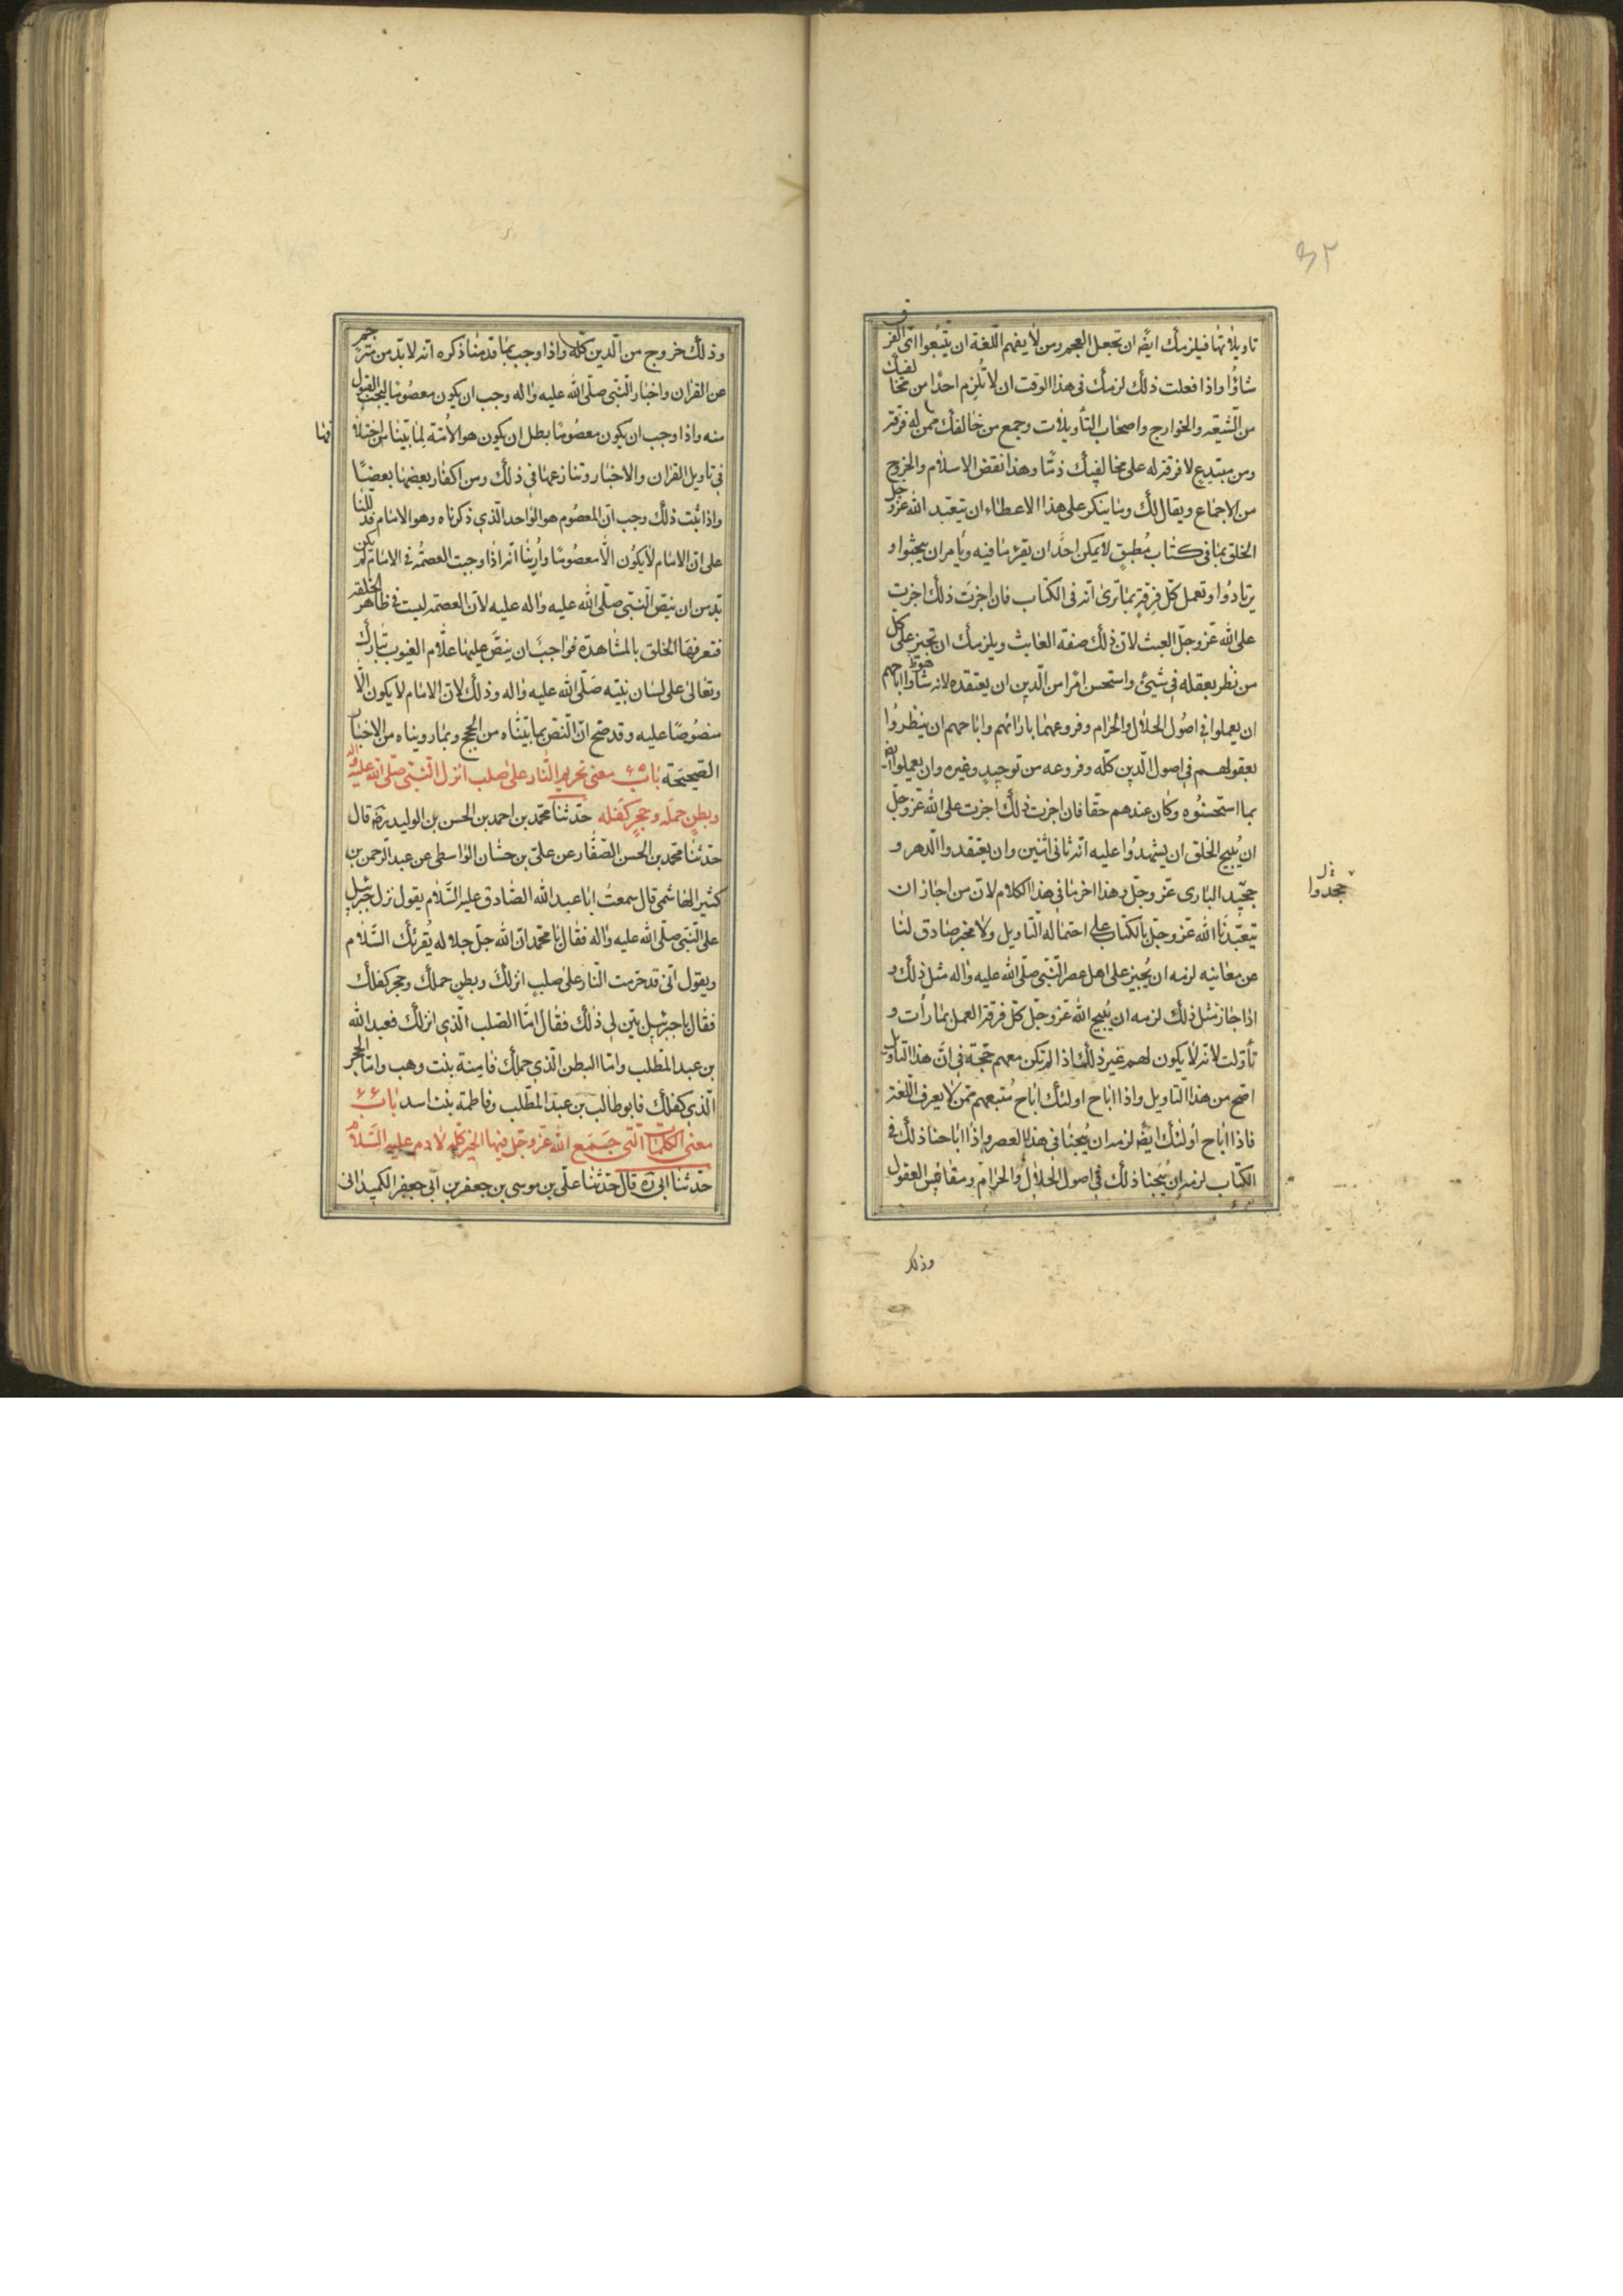 ٣٢
تاويلاتها فيلزمك ايضًا ان تجعل العجم ومن لا يفهم اللّغة ان يتّبعوا اىّ الفرق
شاؤا واذا فعلت ذلك لزمك فى هذا الوقت ان لا تُلزِم احدًا من مخالفيك
من الشّيعه والخوارج واصحاب التأويلات وجميع من خالفك ممن له فرقة
ومن مبتدع لا فرقة له على مخالفيك ذمّا وهذا نقض الاسلام والخروج
من الاجماع ويقال لك وما ينكر على هذا الاعطاء ان يتعبّد الله عزّ وجل
الخلق بما فى كتاب مُطبق لا يمكن احدًا ان يقرء ما فيه ويأمر ان يبحثوا و
يرتادُوا وتعمل كلّ فرقةٍ بما ترى انّه فى الكتاب فان اجزت ذلك اجزت
على الله عزّ وجلّ العبث لانّ ذلك صفة العابث ويلزمك ان تجيز على كل
من نظر بعقله فى شيئ واستحسن امرًا من الّدين ان يعتقده لانه سواء اباحهم
ان يعملوا فى اصُول الحلال والحرام وفروعهما بارائهم واباحهم ان ينظرُوا
بعقولهم فى اصول الّدين كلّه وفروعه من توحيدٍ وغيره وان يعملوا ايضا
بما استحسنُوه وكان عندهم حقا فان اجزت ذلك اجزت على الله عزّ وجلّ
ان يُبيح الخلق ان يشهدُوا عليه انّه ثانى اثنين وان يعتقدوا الّدهر و
جحّيد البارى عزّ وجلّ وهذا اخر ما فى هذا الكلام لانّ من اجاز ان
جحدوا
يتعبّدنا الله عزّ وجلّ بالكتاب على احتماله التّاويل ولا مخبر صادق لنا
عن معانيه لزمه ان يُجيز على اهل عصر النّبّى صلّى الله عليه واله مثل ذلك و
اذا جاز مثل ذلك لزمه ان يُبيح الله عزّ وجلّ كلّ فرقة العمل بما رأت و
تأوّلت لانّه لا يكون لهم غير ذلك اذا لم تكن معهم حجّة فى انّ هذا التّاويل
اصّح من هذا التّاويل واذا اباح اولئك اباح مُتبعهم ممّن لا يعرف اللّغة
فاذا اباح اُولئك ايضًا لزمه ان يُبيحنا فى هذا العصر واذا اباحنا ذلك فى
الكتاب لزمه ان يُبيحنا ذلك فى اصول الحلال والحرام ومقاييس العقول
وذلك
وذلك خروج من الّدين كلّه واذا وجب بما قدمنا ذكره انّه لا بدّ من مترجم
عن القران واخبار النّبّى صلّى الله عليه واله وجب ان يكون معصُومًا ليجب القول
منه واذا وجب ان يكون معصُومًا بطل ان يكون هو الاُمّة لما بيّنا من اختلافها
فى تاويل القران والاخبار وتنازعها فى ذلك ومن اكفار بعضها بعضًا
واذا ثبت ذلك وجب انّ المعصُوم هو الواحد الّذى ذكرناه وهو الامام قد دللنا
على انّ الامام لا يكُون الّا معصُومًا واُرينا انّه اذا وجبت العصمة فى الامام لم يكن
بّد من ان ينصّ النّبّى صلّى الله عليه واله عليه لانّ العصمة ليست فى ظاهر الخلقه
فتعرفها الخلق بالمشاهدة فواجب ان ينصّ عليها علّام الغيوب تبارك
وتعالى على لسان نبيّه صَلّى الله عليه واله وذلك لانّ الامام لا يكون الّا
منصُوصًا عليه وقد صّح انّ النّص بما بيّناه من الحجج وبما رويناه من الاخبار
الصّحيحَة باب معنى تحريم النّار على صلب انزل النّبّى صلّى الله عليه واله
وبطنٍ حمله وحجرٍ كفله حدّثنا محمّد بن احمد بن الحسن بن الوليد رضه قال
حدّثنا محمّد بن الحسن الصّفّار عن علىّ بن حسّان الواسطى عن عبد الرّحمن بن
كثير الهاشمى قال سمعتُ ابا عبد الله الصّادق عليه السَّلام يقول نزل جبرئيل
على النّبّى صلّى الله عليه واله فقال يا محمّد انّ الله جلّ جلاله يُقرئك السَّلام
ويقول انّى قد حرّمت النّار على صلبٍ انزلك وبطنٍ حملك وحجر كفلك
فقال يا جبرئيل بيّن لى ذلك فقال امّا الصّلب الّذى انزلك فعبد الله
بن عبد المطّلب وامّا البطن الّذى حملك فامِنة بنت وهب وامّا الحجر
الّذى كفلك فابو طالب بن عبد المطّلب وفاطمة بنت اسد باب
معنى الكلمات الّتى جَمَع الله عزّ وجلّ فيها الخير كلّه لادم عليه السَّلام
حدّثنا ابى ره قال حدّثنا علىّ بن موسى بن جعفر بن ابى جعفر الكميدانى